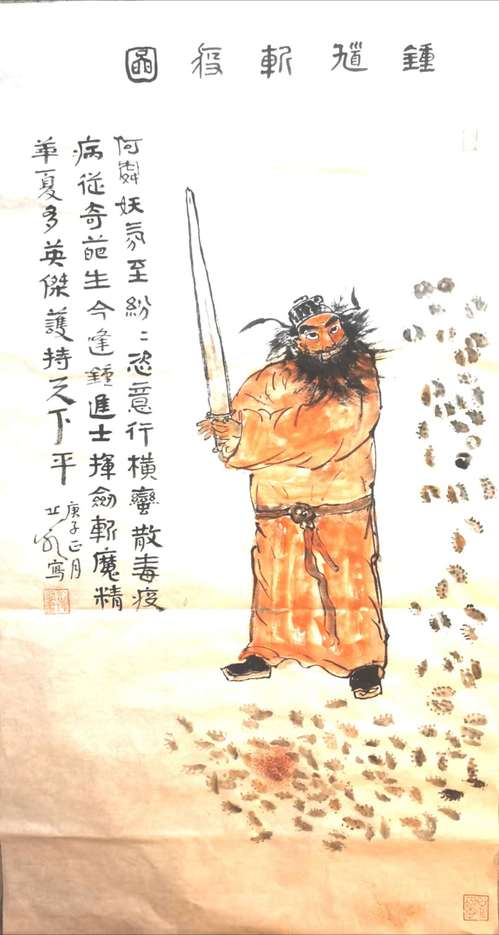 鍾馗斬疫圖
何妖氛至紛〻恣意行橫蠻散毒疫
病從奇葩生今逢鍾進士揮劍斬魔精
華夏多英傑護持天下平
庚子正月
寫